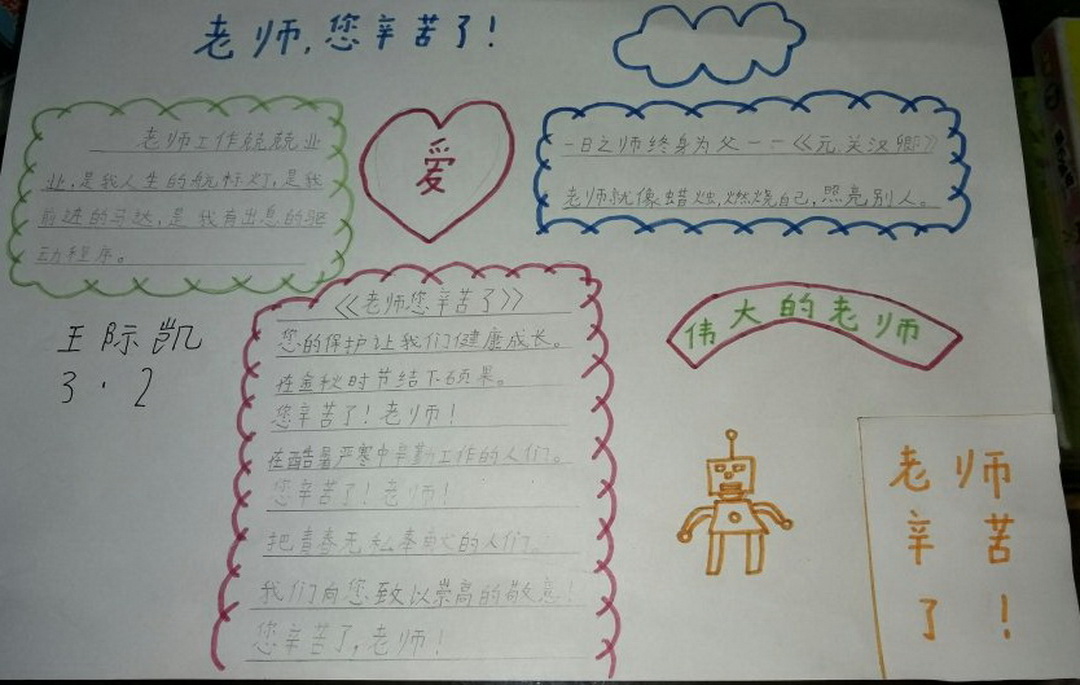 老师,您辛苦了!
老师工作兢兢业
业,是我人生的航标灯,是我
前进的马达,是我有出息的驱
动程序。
爱
一日之师终身为父一一《元.关汉卿》
老师就像蜡烛,燃烧自己,照亮别人。
王际凯
3·2
《老师您辛苦了》
您的保护让我们健康成长。
在金秋时节结下硕果。
您辛苦了!老师!
在酷暑严寒中辛勤工作的人们。
您辛苦了!老师!
把青春无私奉献的人们。
我们向您致以崇高的敬意!
您辛苦了,老师!
伟大的老师
老师
辛苦
了!